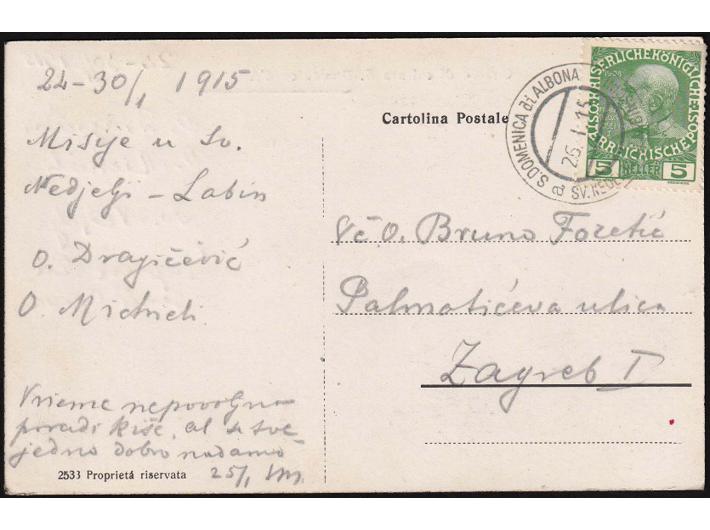 24-30/1 1915
Misije u Sv.
Nedjelji - Labin
O. Dragičević
O. Michieli
Vrieme nepovoljno
poradi kiše, al u sve
jedno dobro nadamo
25/1
2533 Proprietá riservata
Cartolina Postale
S. DOMENICA di ALBONA
26. I. 15
SV. NEDE
KAISERLICHE KÖNIGLICHE ÖSTERREICHISCHE POST
5 HELLER 5
Vč. O. Bruno Foretić
Palmotićeva ulica
Zagreb I